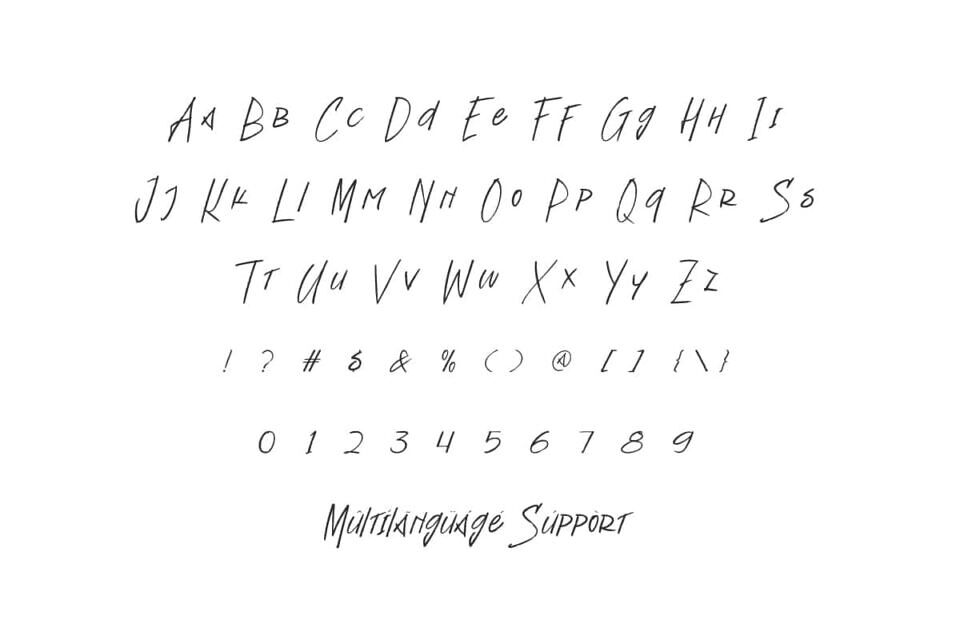 Aa Bb Cc Dd Ee Ff Gg Hh Ii
Jj Kk Ll Mm Nn Oo Pp Qq Rr Ss
Tt Uu Vv Ww Xx Yy Zz
! ? # $ & % ( ) @ [ ] { \ }
0 1 2 3 4 5 6 7 8 9
Múltìlängüágé Súppòrt